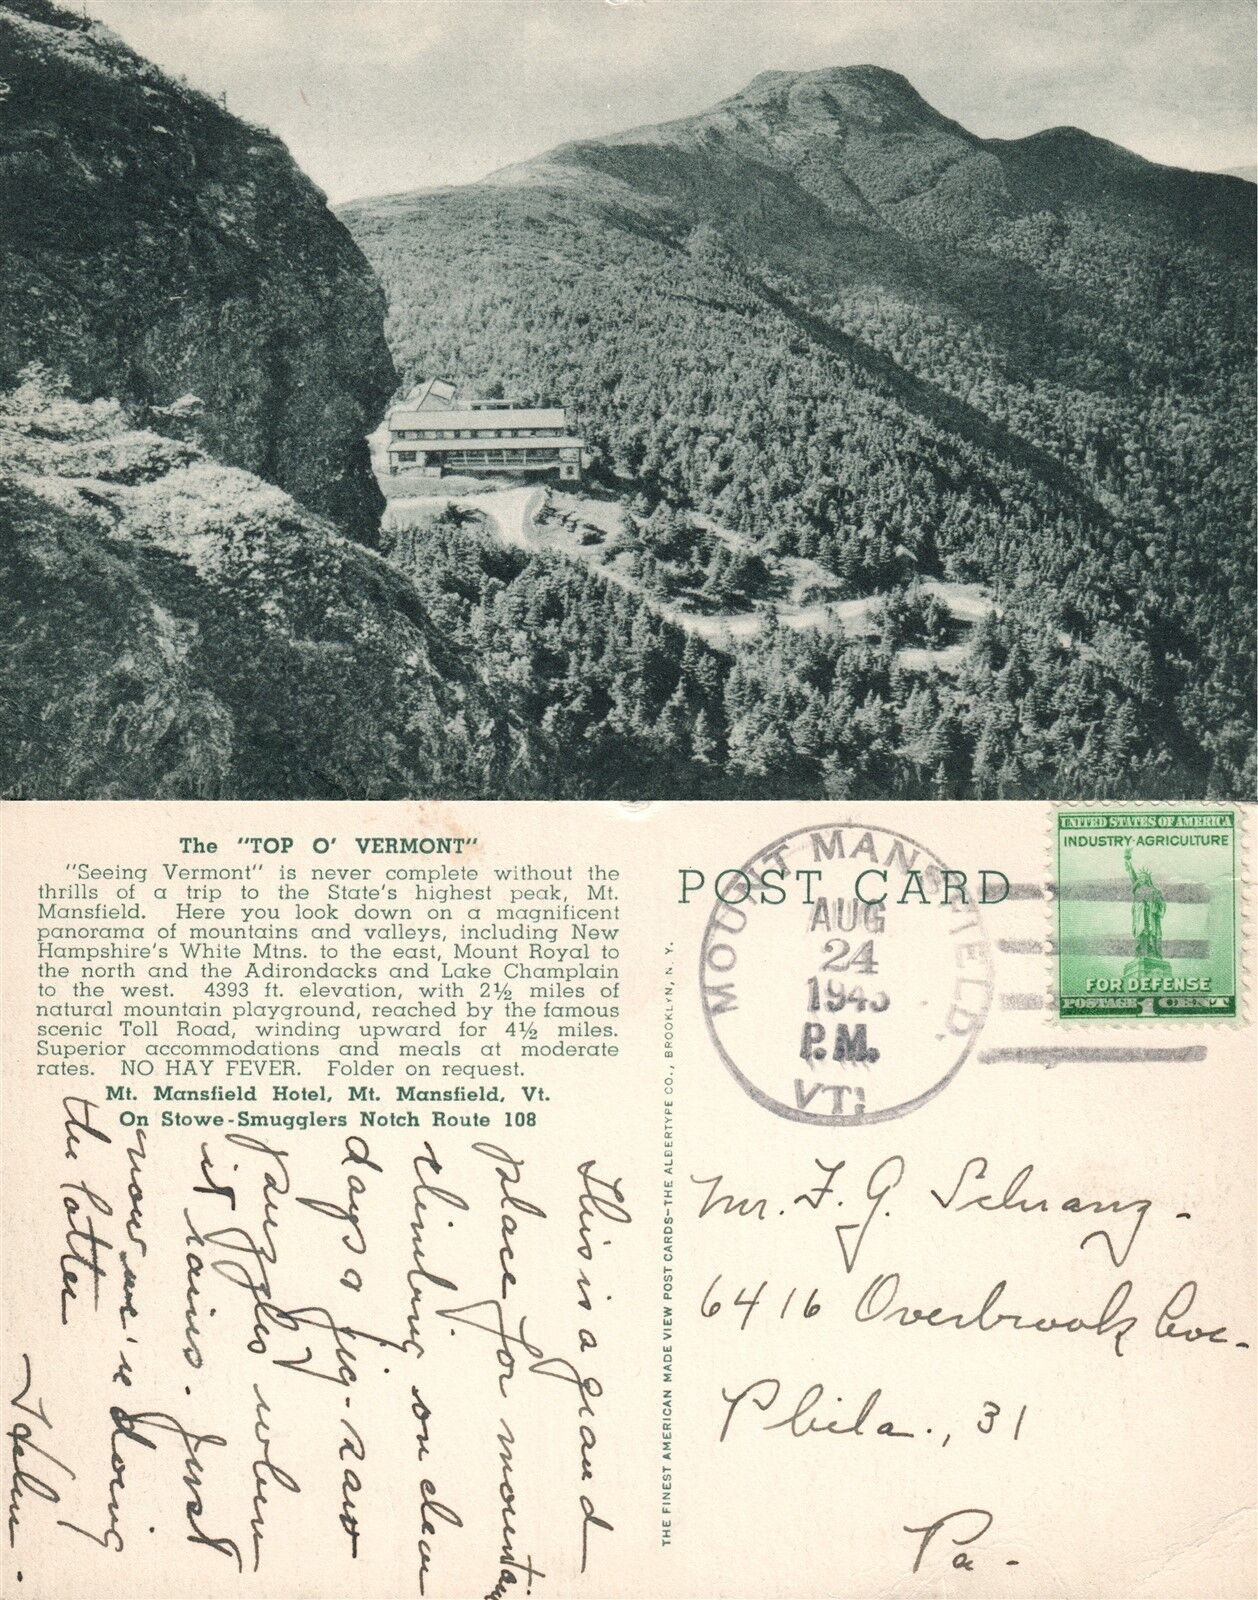 The "TOP O' VERMONT"
"Seeing Vermont" is never complete without the
thrills of a trip to the State's highest peak, Mt.
Mansfield. Here you look down on a magnificent
panorama of mountains and valleys, including New
Hampshire's White Mtns. to the east, Mount Royal to
the north and the Adirondacks and Lake Champlain
to the west. 4393 ft. elevation, with 2½ miles of
natural mountain playground, reached by the famous
scenic Toll Road, winding upward for 4½ miles.
Superior accommodations and meals at moderate
rates. NO HAY FEVER. Folder on request.
Mt. Mansfield Hotel, Mt. Mansfield, Vt.
On Stowe-Smugglers Notch Route 108
This is a grand
place for mountain
climbing on clear
days & jig-saw
puzzles when
it rains. Just
now we're doing
the latter
Helen.
THE FINEST AMERICAN MADE VIEW POST CARDS—THE ALBERTYPE CO., BROOKLYN, N. Y.
POST CARD
MOUNT MANSFIELD,
AUG
24
P.M.
VT.
UNITED STATES OF AMERICA
INDUSTRY·AGRICULTURE
FOR DEFENSE
POSTAGE 1 CENT
Mr. F. G. Schranz -
6416 Overbrook Ave.
Phila., 31
Pa -